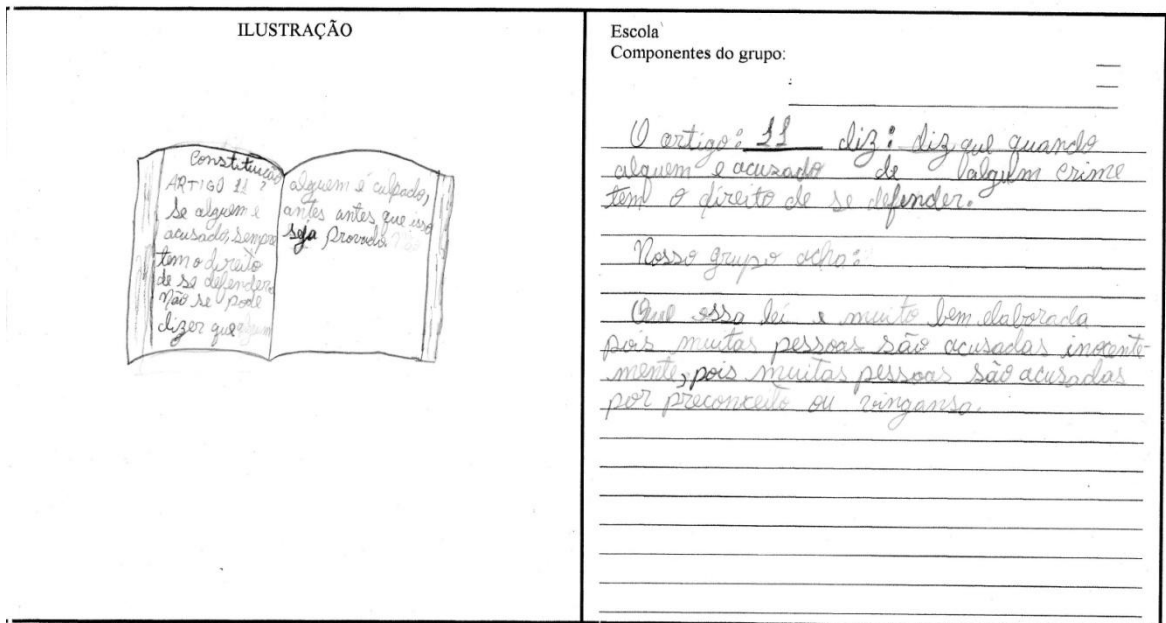 ILUSTRAÇÃO
Constituição
ARTIGO 11 :
Se alguem é
acusado, sempre
tem o direito
de se defender.
Não se pode
dizer que alguem
alguem é culpado,
antes antes que isso
seja Provado.
Escola
Componentes do grupo:
O artigo: 11 diz: diz que quando
alguem e acuzado de algum crime
tem o direito de se defender.
Nosso grupo acha:
Que essa lei e muito bem elaborada
pois muitas pessoas são acusadas inocente-
mente, pois muitas pessoas são acusadas
por preconceito ou vingansa.